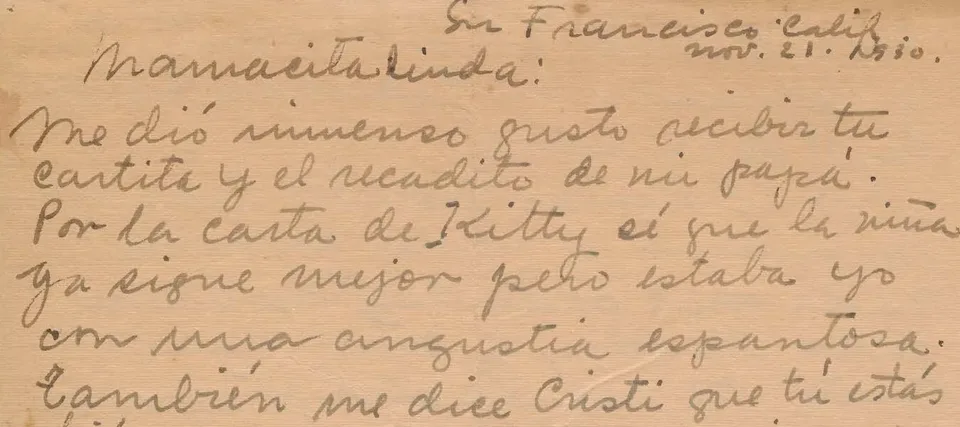 Sn Francisco Calif
Nov. 21. 1930.
Mamacita linda:
Me dió inmenso gusto recibir tu
cartita y el recadito de mi papá.
Por la carta de Kitty sé que la niña
ya sigue mejor pero estaba yo
con una angustia espantosa.
También me dice Cristi que tú estás